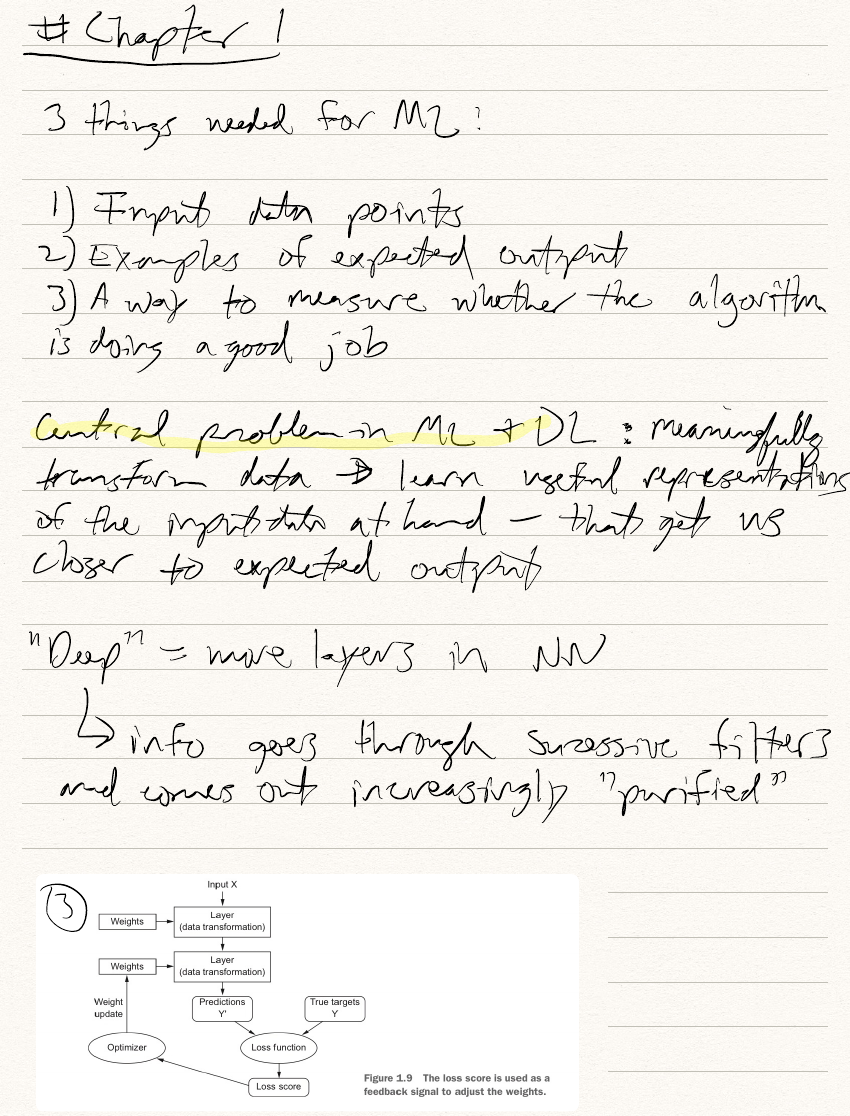 # Chapter 1
3 things needed for ML:
1) Input data points
2) Examples of expected output
3) A way to measure whether the algorithm
is doing a good job
Central problem in ML + DL : meaningfully
transform data → learn useful representations
of the input data at hand – that get us
closer to expected output
"Deep" = more layers in NN
↳ info goes through sucessive filters
and comes out increasingly "purified"
13
Input X
Weights
Layer
(data transformation)
Weights
Layer
(data transformation)
Weight
update
Predictions
Y'
True targets
Y
Optimizer
Loss function
Loss score
Figure 1.9 The loss score is used as a
feedback signal to adjust the weights.